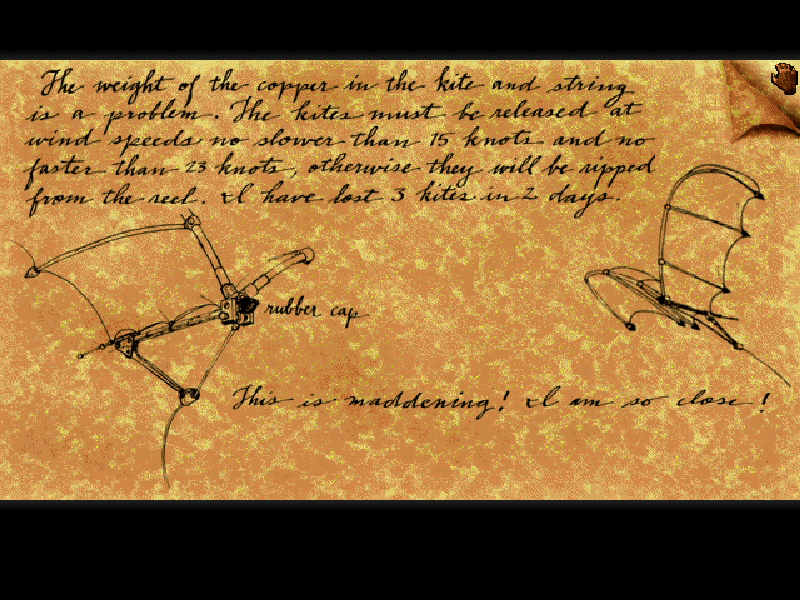 The weight of the copper in the kite and string
is a problem. The kites must be released at
wind speeds no slower than 15 knots and no
faster than 23 knots, otherwise they will be ripped
from the reel. I have lost 3 kites in 2 days.
rubber cap
This is maddening! I am so close!